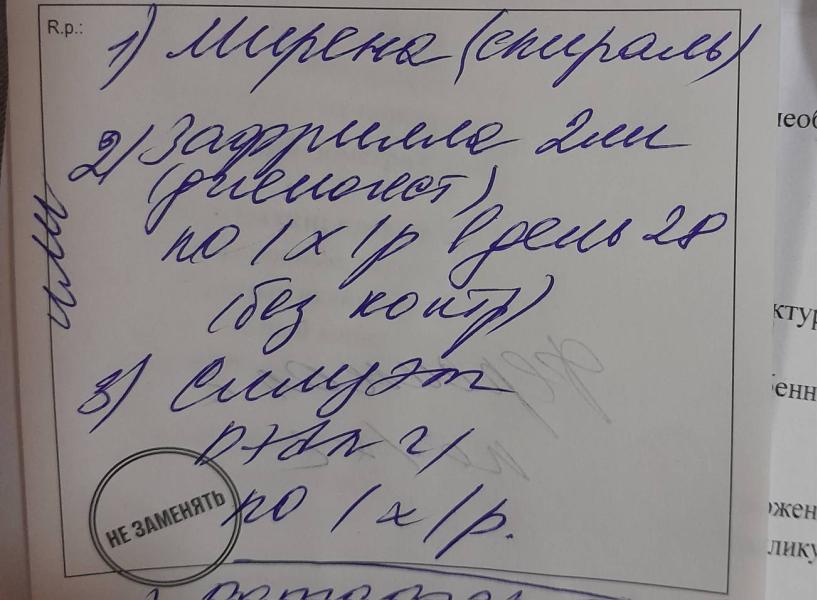 R.p.:
1) Мирена (спираль)
2) Зафрилла 2мг
(диеногест)
по 1 х 1р в день 28
(без контр)
или
3) Силуэт
по 1 х 1р.
НЕ ЗАМЕНЯТЬ
необ
ктур
бенн
ожен
лику